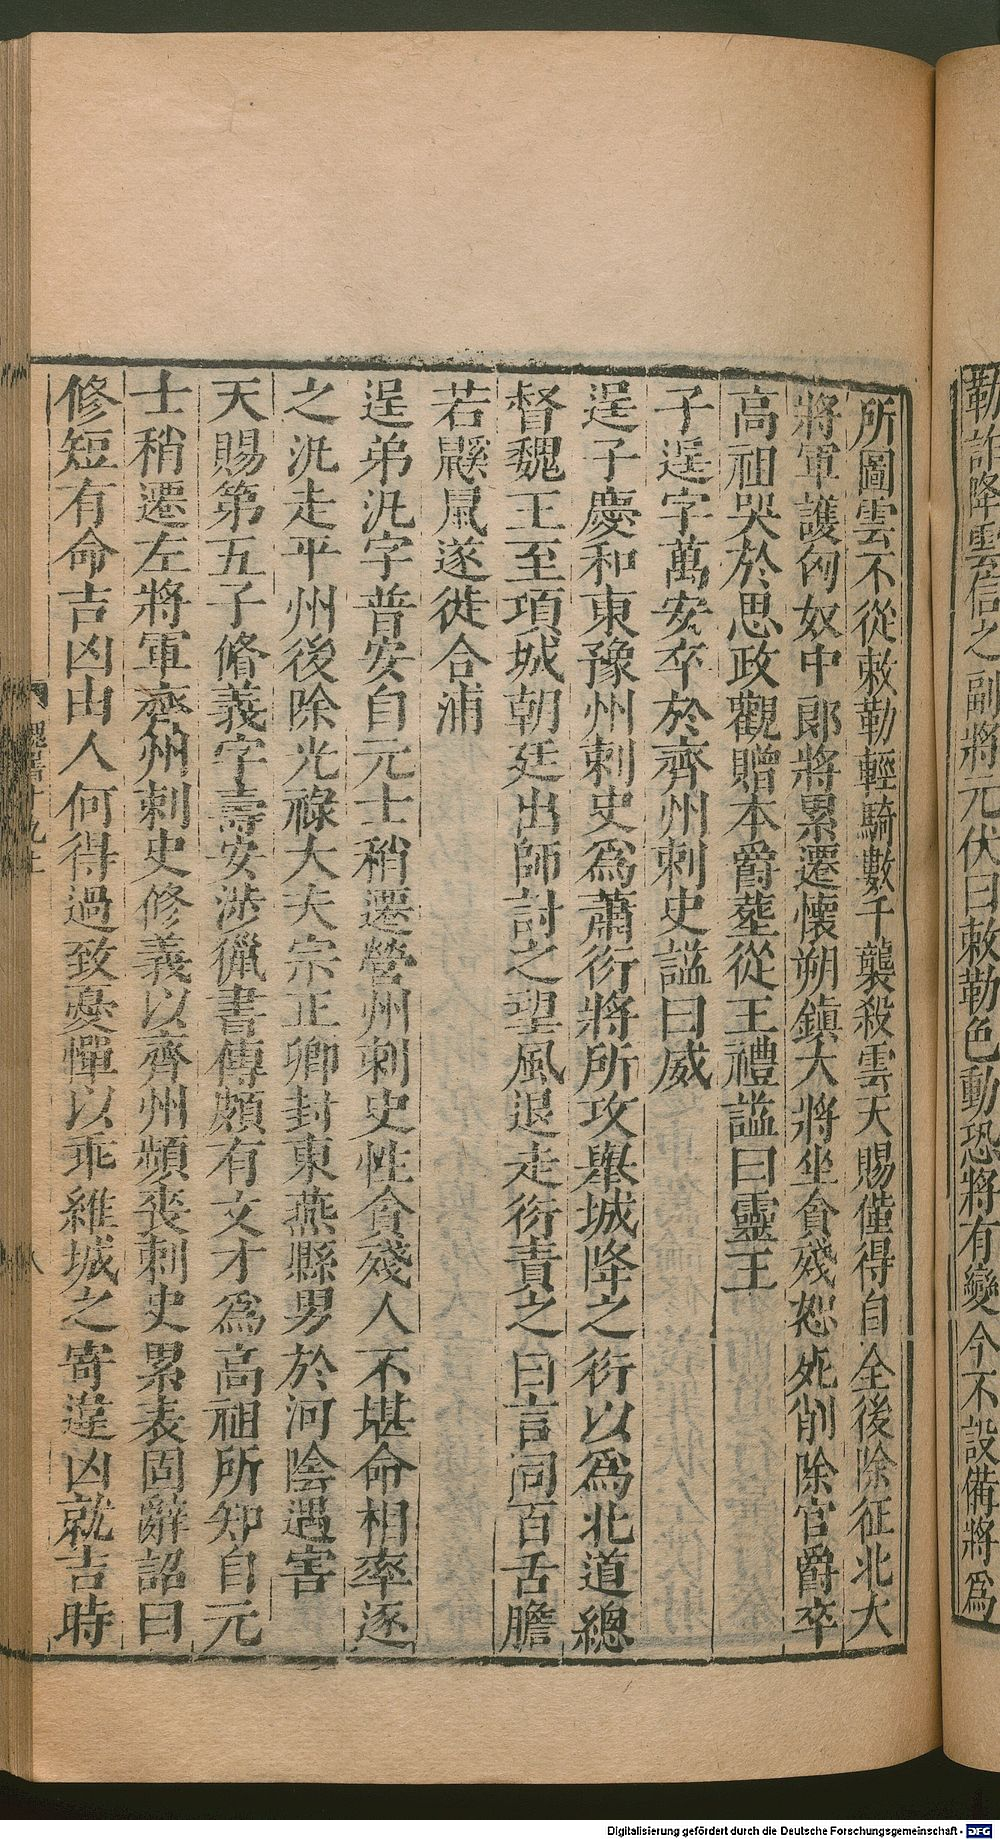 勒詐降雲信之副將元伏曰敕勒色動恐將有變今不設備將爲
所圖雲不從敕勒輕騎數千襲殺雲天賜僅得自全後除征北大
將軍護匈奴中郎將累遷懷朔鎮大將坐貪殘恕死削除官爵卒
高祖哭於思政觀贈本爵葬從王禮諡曰靈王
子逞字萬安卒於齊州刺史諡曰威
逞子慶和東豫州刺史爲蕭衍將所攻舉城降之衍以爲北道總
督魏王至項城朝廷出師討之望風退走衍責之曰言同百舌膽
若鼷鼠遂徙合浦
逞弟汎字普安自元士稍遷營州刺史性貪殘人不堪命相率逐
之汎走平州後除光祿大夫宗正卿封東燕縣男於河陰遇害
天賜第五子脩義字壽安涉獵書傳頗有文才爲高祖所知自元
士稍遷左將軍齊州刺史修義以齊州頻喪刺史累表固辭詔曰
修短有命吉凶由人何得過致憂憚以乖維城之寄違凶就吉時
八
Digitalisierung gefördert durch die Deutsche Forschungsgemeinschaft - DFG